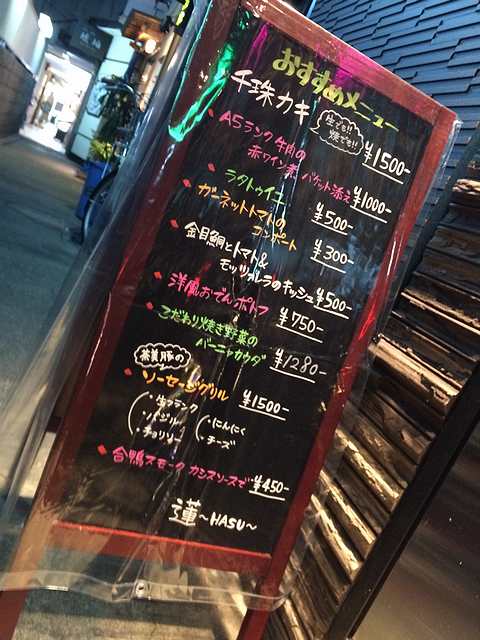 おすすめメニュー
千珠カキ
生でも!!
焼でも!!
¥1500-
A5ランク牛肉の
赤ワイン煮 バケット添え ¥1000-
ラタトゥイユ ¥500-
ガーネットトマトの
コンポート ¥300-
金目鯛とトマト&
モッツァレラのキッシュ ¥500-
洋風おでんポトフ ¥750-
こだわり焼き野菜の
バーニャカウダ ¥1280-
茶美豚の
ソーセージグリル ¥1500-
・生フランク
・バジル
・チョリソー
・にんにく
・チーズ
合鴨スモーク カシスソースで ¥450-
蓮〜HASU〜